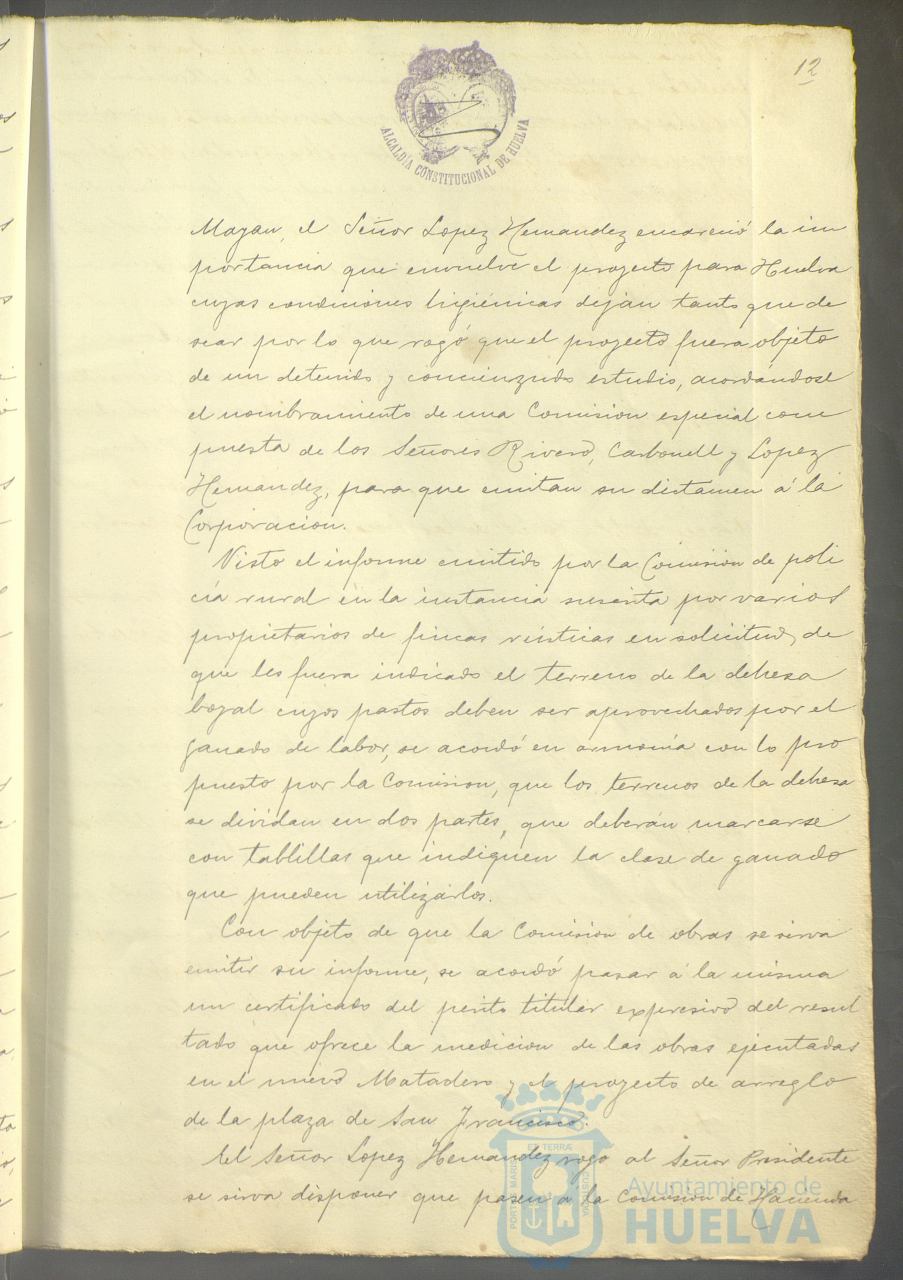 12
ALCALDÍA CONSTITUCIONAL DE HUELVA
Mayan, el Señor Lopez Hernandez encareció la im
portancia que envuelve el proyecto para Huelva
cuyas condiciones higiénicas dejan tanto que de
sear por lo que rogó que el proyecto fuera objeto
de un detenido y concienzudo estudio, acordándose
el nombramiento de una Comision especial com
puesta de los Señores Rivero, Carbonell y Lopez
Hernandez, para que emitan su dictamen á la
Corporacion.
Visto el informe emitido por la Comision de poli
cía rural en la instancia suscrita por varios
propietarios de fincas rústicas en solicitud, de
que les fuera indicado el terreno de la dehesa
boyal cuyos pastos deben ser aprovechados por el
ganado de labor, se acordó en armonía con lo pro
puesto por la Comision, que los terrenos de la dehesa
se dividan en dos partes, que deberán marcarse
con tablillas que indiquen la clase de ganado
que pueden utilizarlos.
Con objeto de que la Comision de obras se sirva
emitir su informe, se acordó pasar á la misma
un certificado del perito titular expresivo del resul
tado que ofrece la medicion de las obras ejecutadas
en el nuevo Matadero y el proyecto de arreglo
de la plaza de San Francisco.
El Señor Lopez Hernandez rogo al Señor Presidente
se sirva disponer que pasen á la Comision de Hacienda
Ayuntamiento de
HUELVA